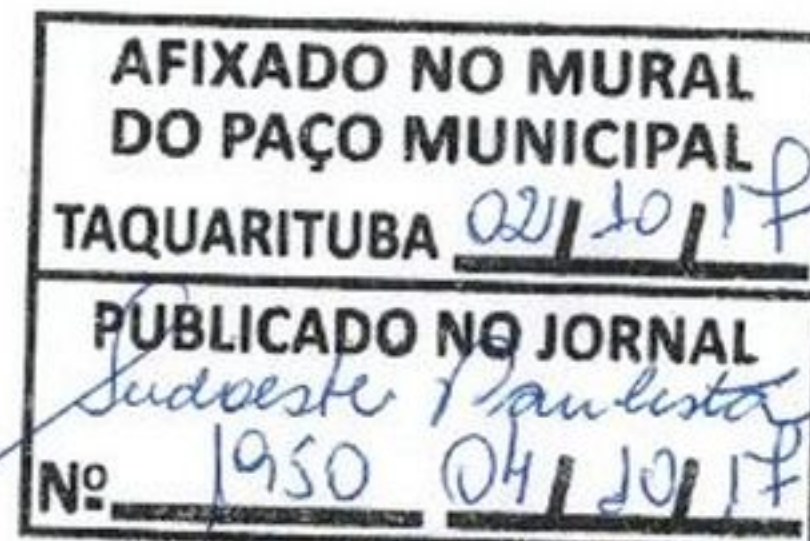 AFIXADO NO MURAL
DO PAÇO MUNICIPAL
TAQUARITUBA 02/10/17
PUBLICADO NO JORNAL
Sudoeste Paulista
Nº 1950 04/10/17